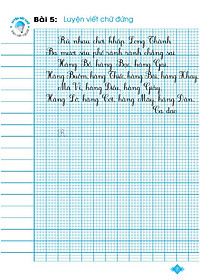 Bài 5: Luyện viết chữ đứng
Rủ nhau chơi khắp Long Thành
Ba mươi sáu phố rành rành chẳng sai
Hàng Bồ, hàng Bạc, hàng Gai
Hàng Buồm, hàng Thiếc, hàng Bài, hàng Khay
Mã Vĩ, hàng Điếu, hàng Giày
Hàng Lờ, hàng Cót, hàng Mây, hàng Đàn.
Ca dao